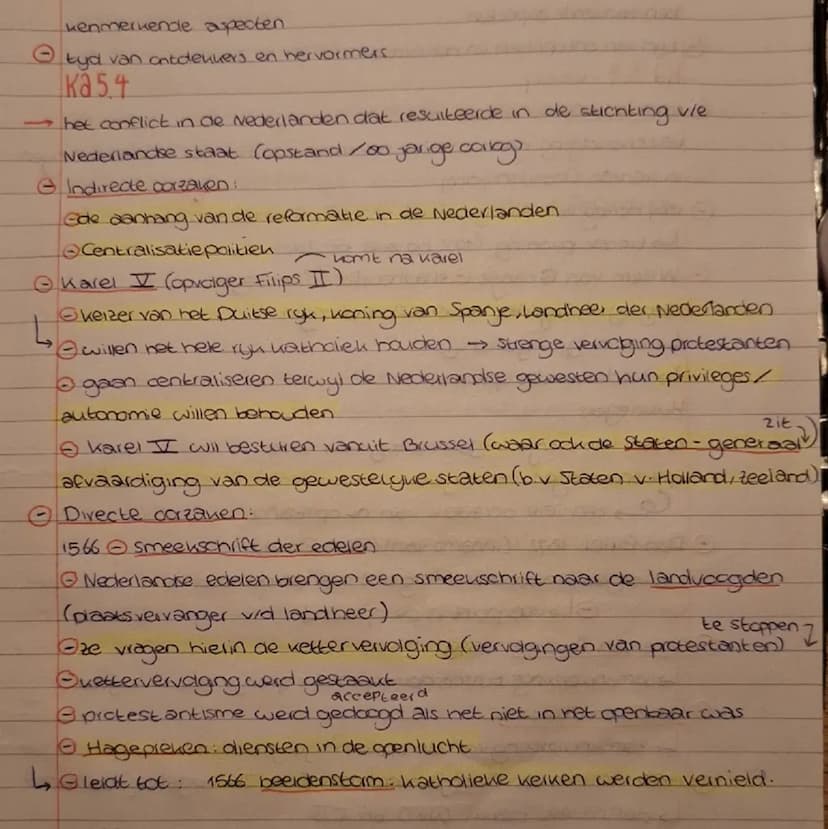 kenmerkende aspecten
⊖ tyd van ontdekkers en hervormers
Ka 5.4
→ het conflict in de Nederlanden dat resulteerde in de stichting v/e
Nederlandse staat (opstand /80 jarige oorlog)
⊖ Indirecte oorzaken:
⊖ de aanhang van de reformatie in de Nederlanden
⊖ Centralisatiepolitiek
komt na karel
⊖ Karel V (opvolger Filips II)
⊖ keizer van het Duitse ryk, koning van Spanje, Landheer der Nederlanden
↳ ⊖ willen het hele ryk katholiek houden → strenge vervolging protestanten
⊖ gaan centraliseren terwyl de Nederlandse gewesten hun privileges/
autonomie willen behouden
zit
⊖ Karel V wil besturen vanuit Brussel (waar ook de Staten-generaal)
afvaardiging van de gewestelyke staten (b.v Staten v. Holland, Zeeland)
⊖ Directe oorzaken:
1566 ⊖ smeekschrift der edelen
⊖ Nederlandse edelen brengen een smeekschrift naar de landvoogden
(plaatsvervanger v/d landheer)
te stoppen
⊖ ze vragen hierin de kettervervolging (vervolgingen van protestanten)
⊖ kettervervolgng werd gestaakt
accepteerd
⊖ protestantisme werd gedoogd als het niet in het openbaar was
⊖ Hagepreken: diensten in de openlucht
↳ ⊖ leidt tot: 1566 beeldenstorm: katholieke kerken werden vernield.